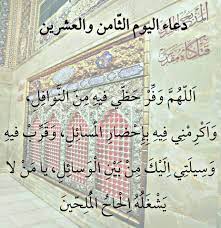 دعاء اليوم الثّامن والعشرين
اَللّهُمَّ وَفِّرْ حَظّي فيهِ مِنَ النَّوافِلِ،
وَاَكْرِمْني فيهِ بِاِحْضارِ الْمَسائِلِ، وَقَرِّبْ فيهِ
وَسيلَتي اِلَيْكَ مِنْ بَيْنِ الْوَسائِلِ، يا مَنْ لا
يَشْغَلُهُ اِلْحاحُ الْمُلِحّينَ